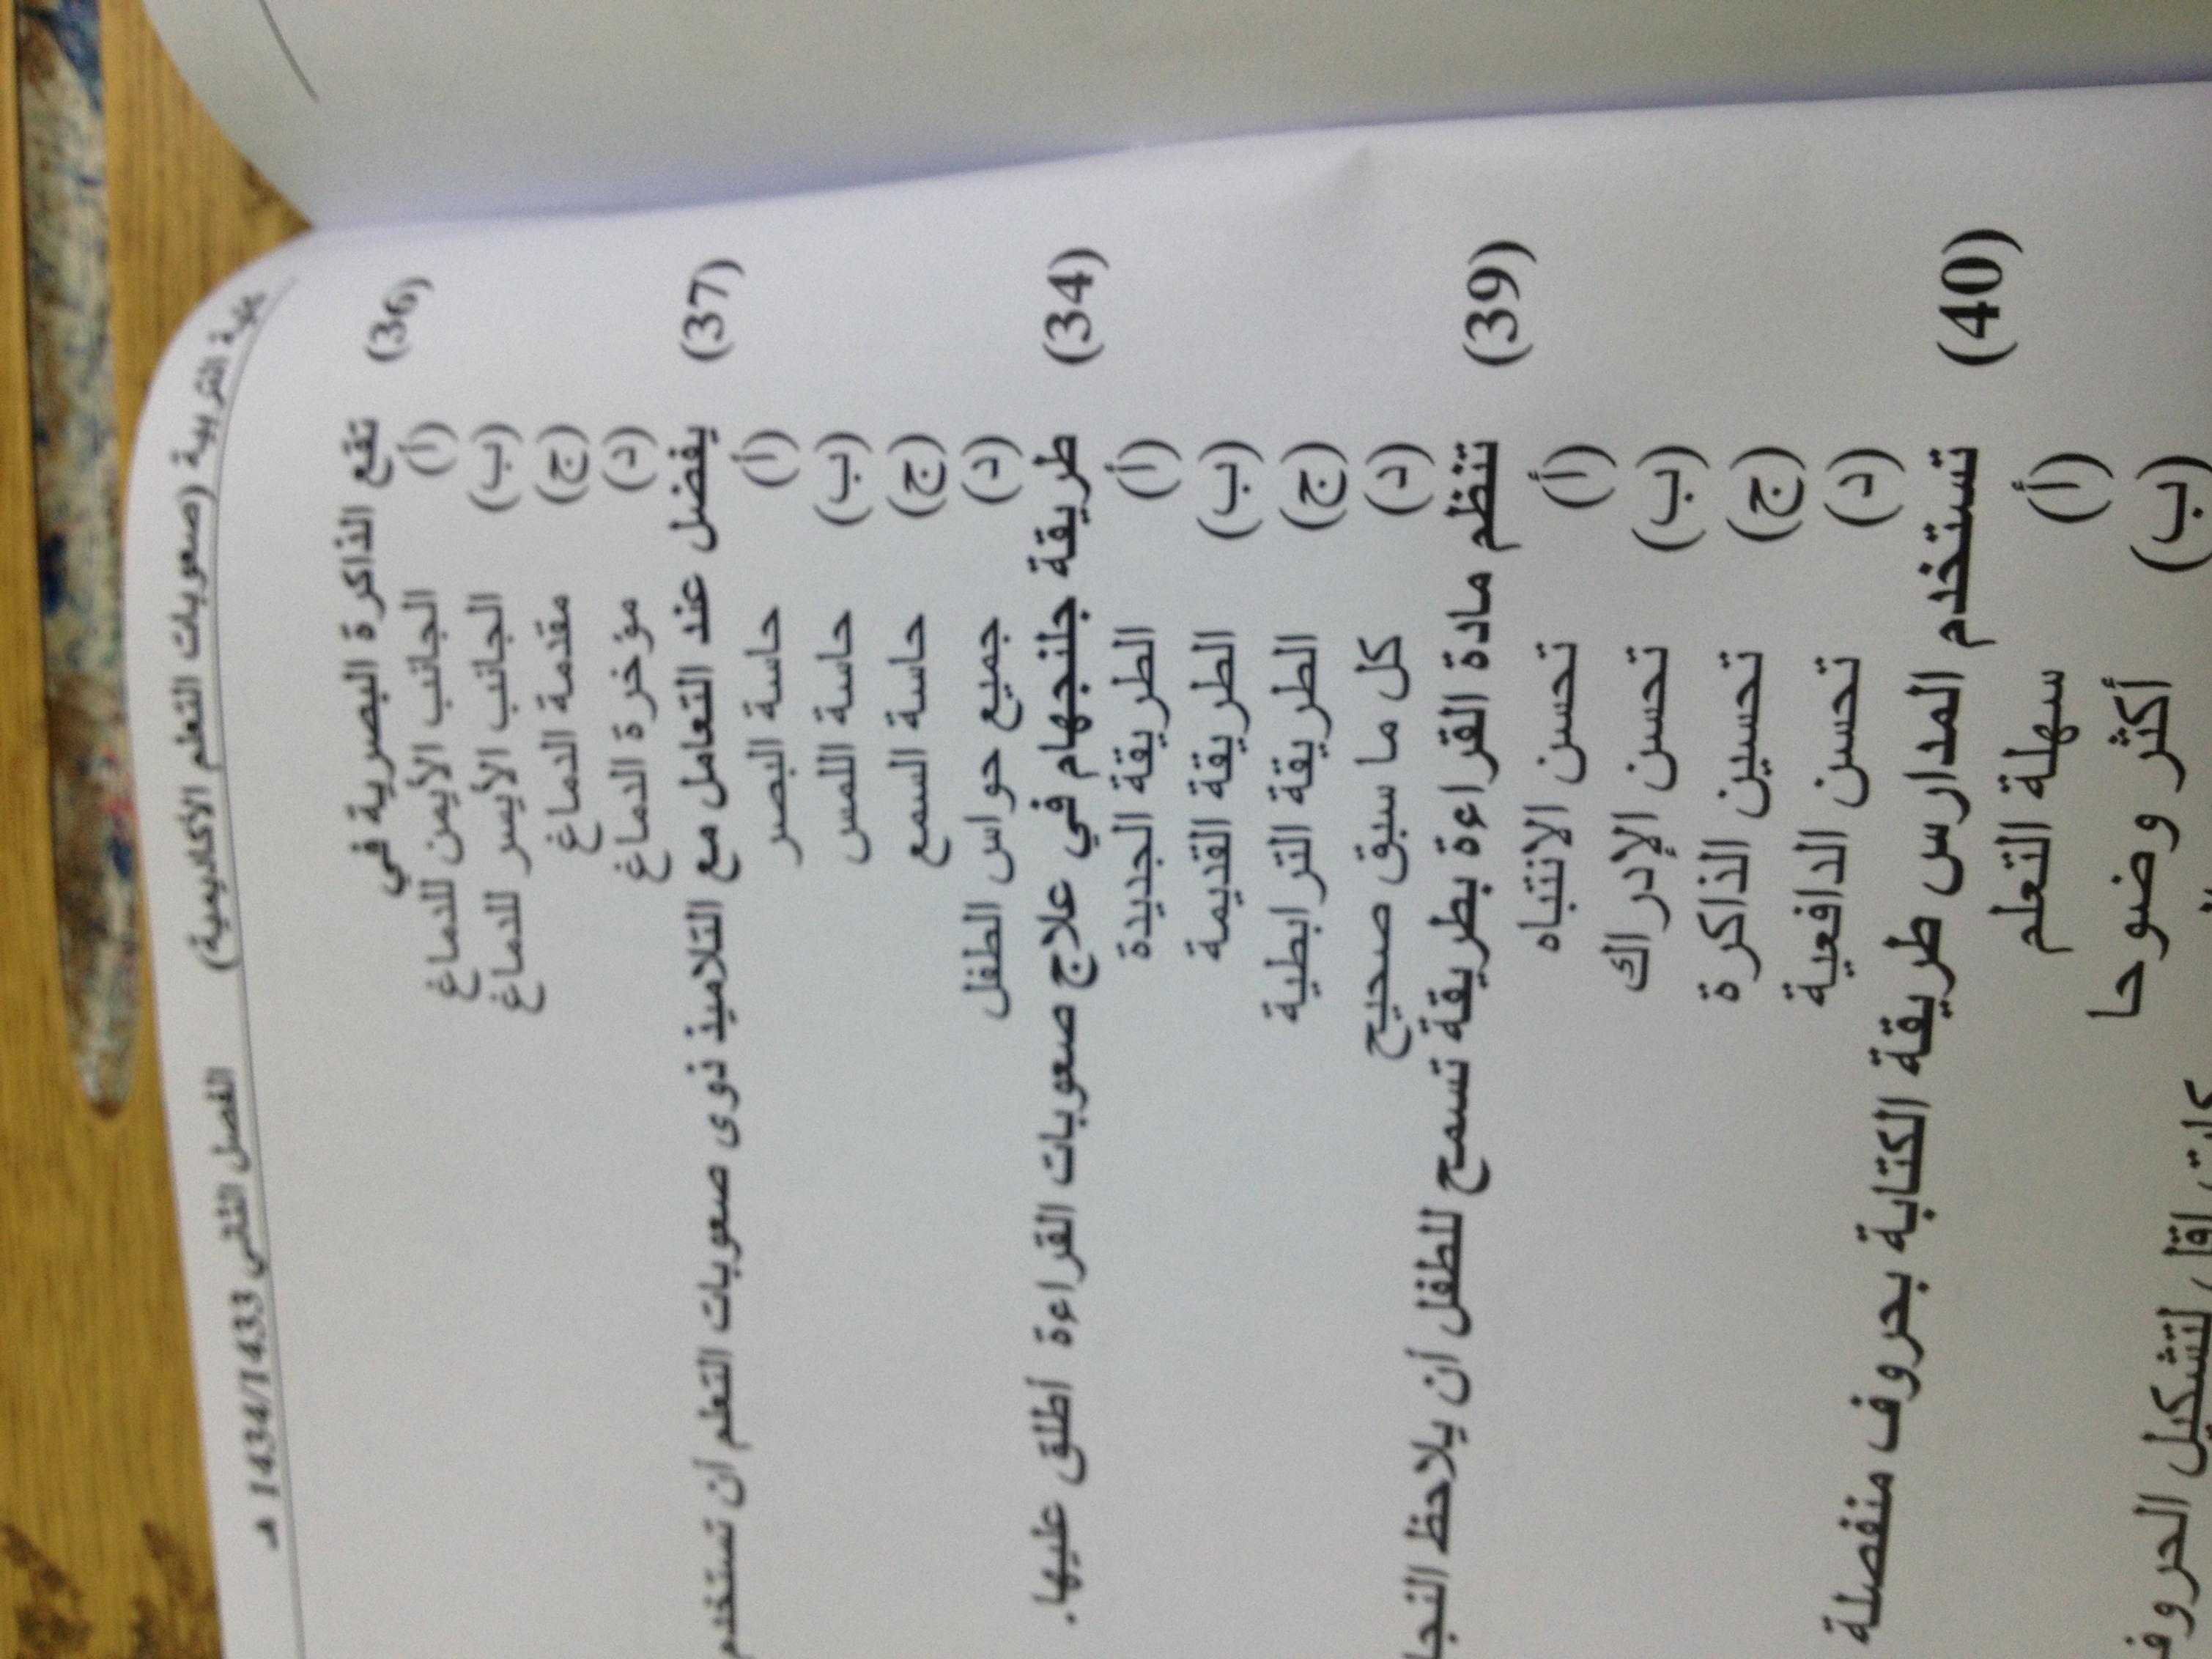 كلية التربية (صعوبات التعلم الأكاديمية) الفصل الثاني 1434/1433 هـ
(36) تقع الذاكرة البصرية في
(أ) الجانب الأيمن للدماغ
(ب) الجانب الأيسر للدماغ
(ج) مقدمة الدماغ
(د) مؤخرة الدماغ
(37) يفضل عند التعامل مع التلاميذ ذوى صعوبات التعلم أن تستخدم
(أ) حاسة البصر
(ب) حاسة اللمس
(ج) حاسة السمع
(د) جميع حواس الطفل
(34) طريقة جلنجهام في علاج صعوبات القراءة أطلق عليها.
(أ) الطريقة الجديدة
(ب) الطريقة القديمة
(ج) الطريقة الترابطية
(د) كل ما سبق صحيح
(39) تنظم مادة القراءة بطريقة تسمح للطفل أن يلاحظ
(أ) تحسن الانتباه
(ب) تحسن الإدراك
(ج) تحسين الذاكرة
(د) تحسن الدافعية
(40) تستخدم المدارس طريقة الكتابة بحروف منفصلة
(أ) سهلة التعلم
(ب) أكثر وضوحا
لتشكيل